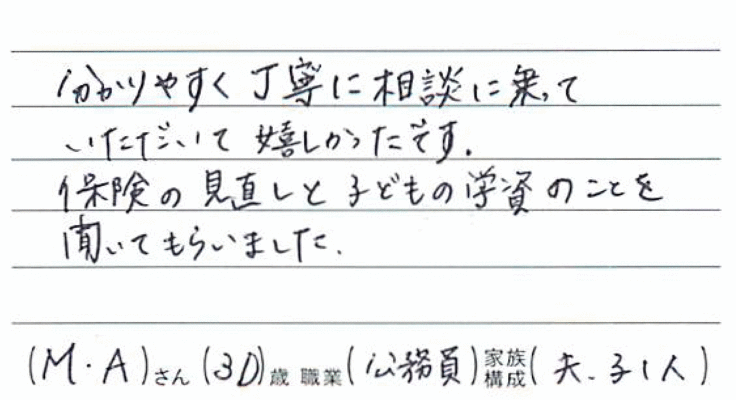 分かりやすく丁寧に相談に乗って
いただいて嬉しかったです.
保険の見直しと子どもの学資のことを
聞いてもらいました.
(M・A)さん(30)歳 職業(公務員)家族構成(夫、子1人)